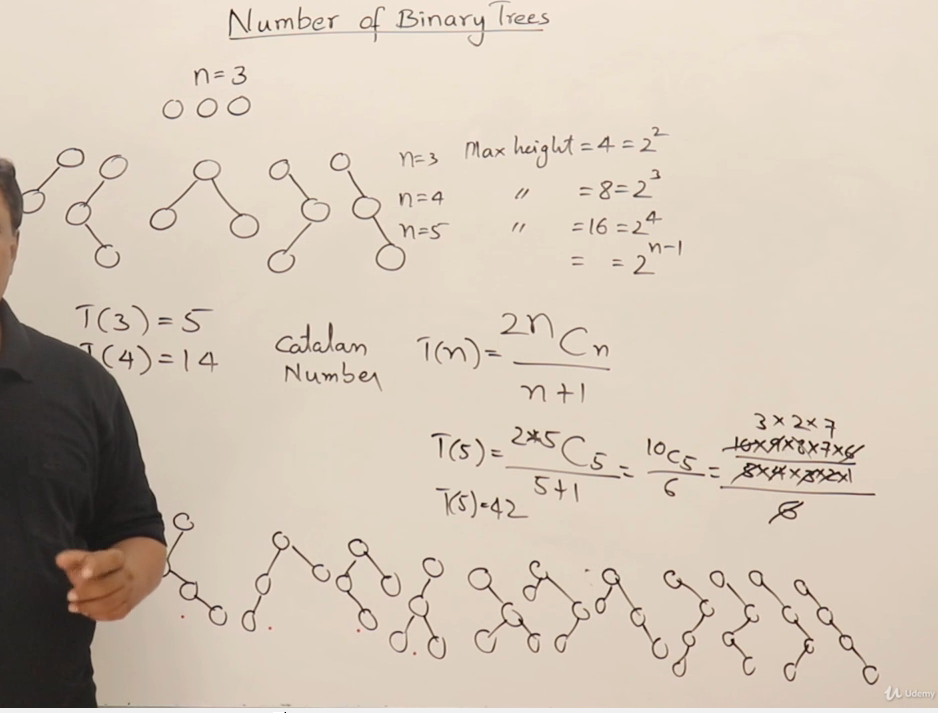 Number of Binary Trees
n=3
n=3 Max height = 4 = 2^2
n=4 〃 = 8 = 2^3
n=5 〃 = 16 = 2^4
= = 2^(n-1)
T(3) = 5
T(4) = 14
Catalan
Number
T(n) = 2nCn / n+1
T(5) = 2*5C5 / 5+1 = 10C5 / 6 = 10×9×8×7×6 / 5×4×3×2×1 / 6
3×2×7
T(5)=42
Udemy